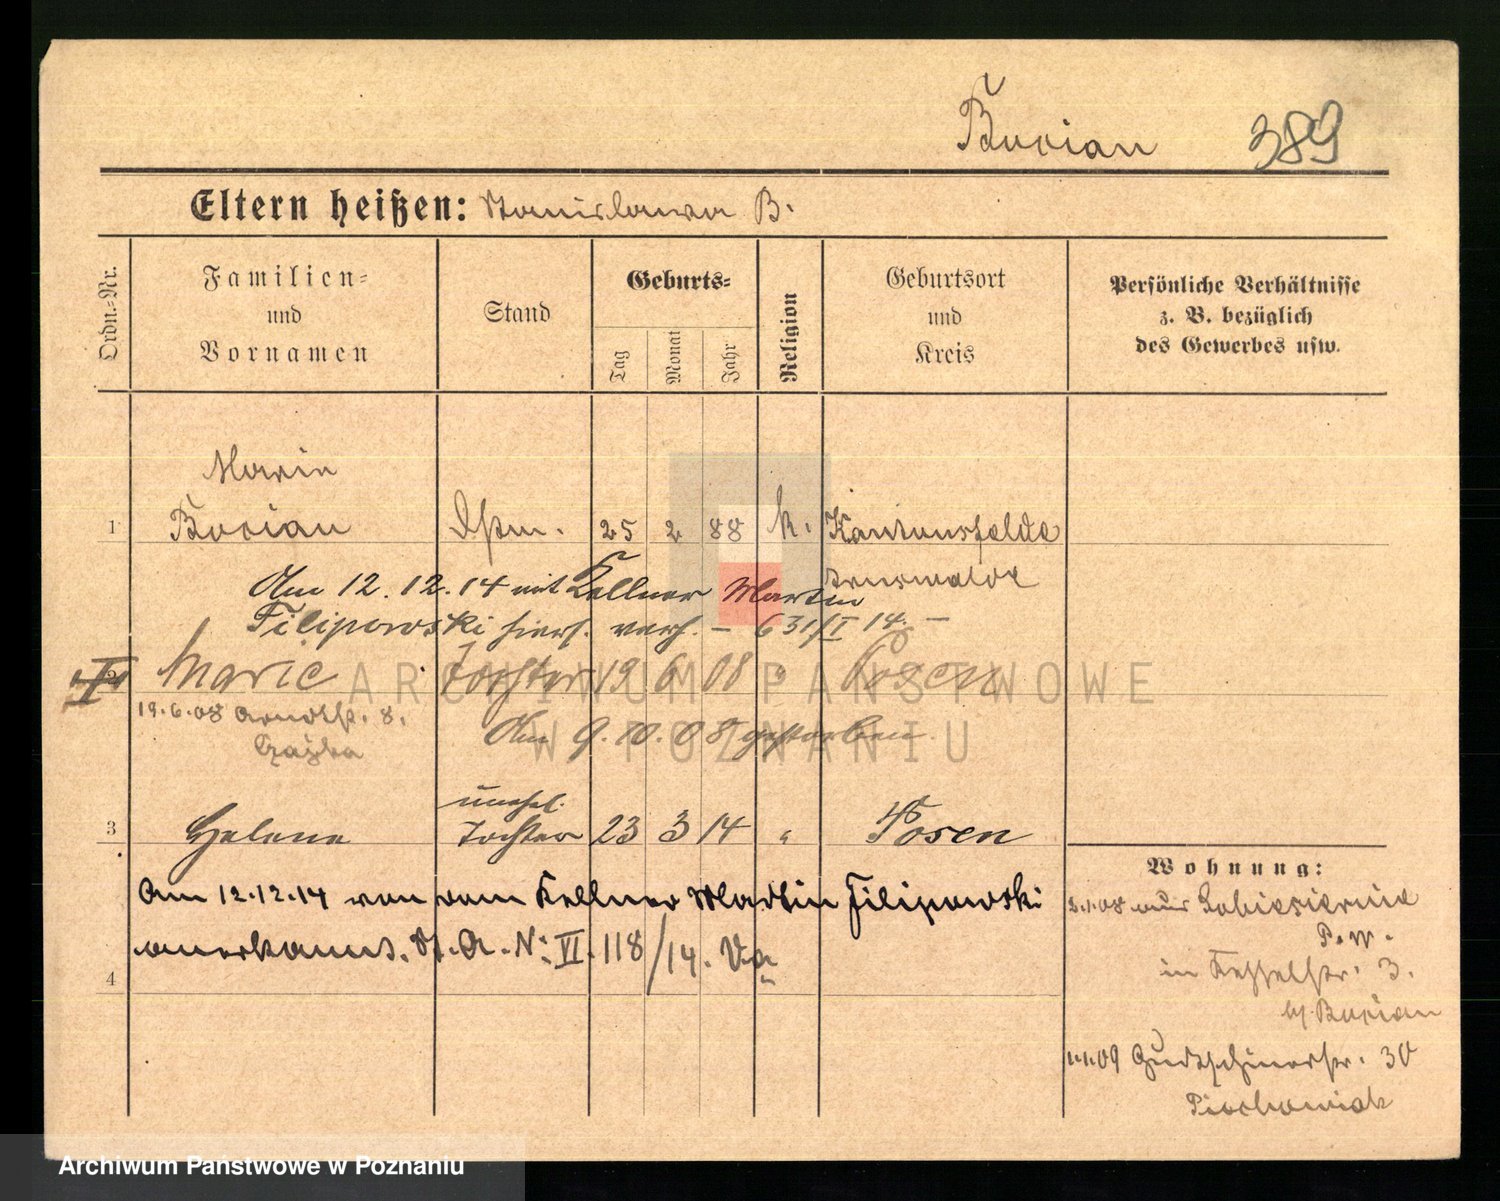 Bucian 389
Eltern heißen: Stanislawa B.
Ordn.-Nr.
Familien-
und
Vornamen
Stand
Geburts-
Tag
Monat
Jahr
Religion
Geburtsort
und
Kreis
Persönliche Verhältnisse
z. B. bezüglich
des Gewerbes usw.
Marie
1 Bucian 25 2 88 k. Kantonsfelde
Am 12.12.14 mit Kellner Martin
Filipowski hiers. verh. – 631/I 14. –
Marie Tochter 19 6 08 " Posen
19.6.08 Arndtstr. 8.
Am 9.10.08 gestorben.
unehel.
3 Helene Tochter 23 3 14 " Posen
Am 12.12.14 von dem Kellner Martin Filipowski
anerkannt. St. A. N: VI. 118/14.
4
Wohnung:
2.1.08 aus
P. W.
in Kesselstr. 3.
b/ Bucian
1.1.09 30
ARCHIWUM PAŃSTWOWE
W POZNANIU
Archiwum Państwowe w Poznaniu